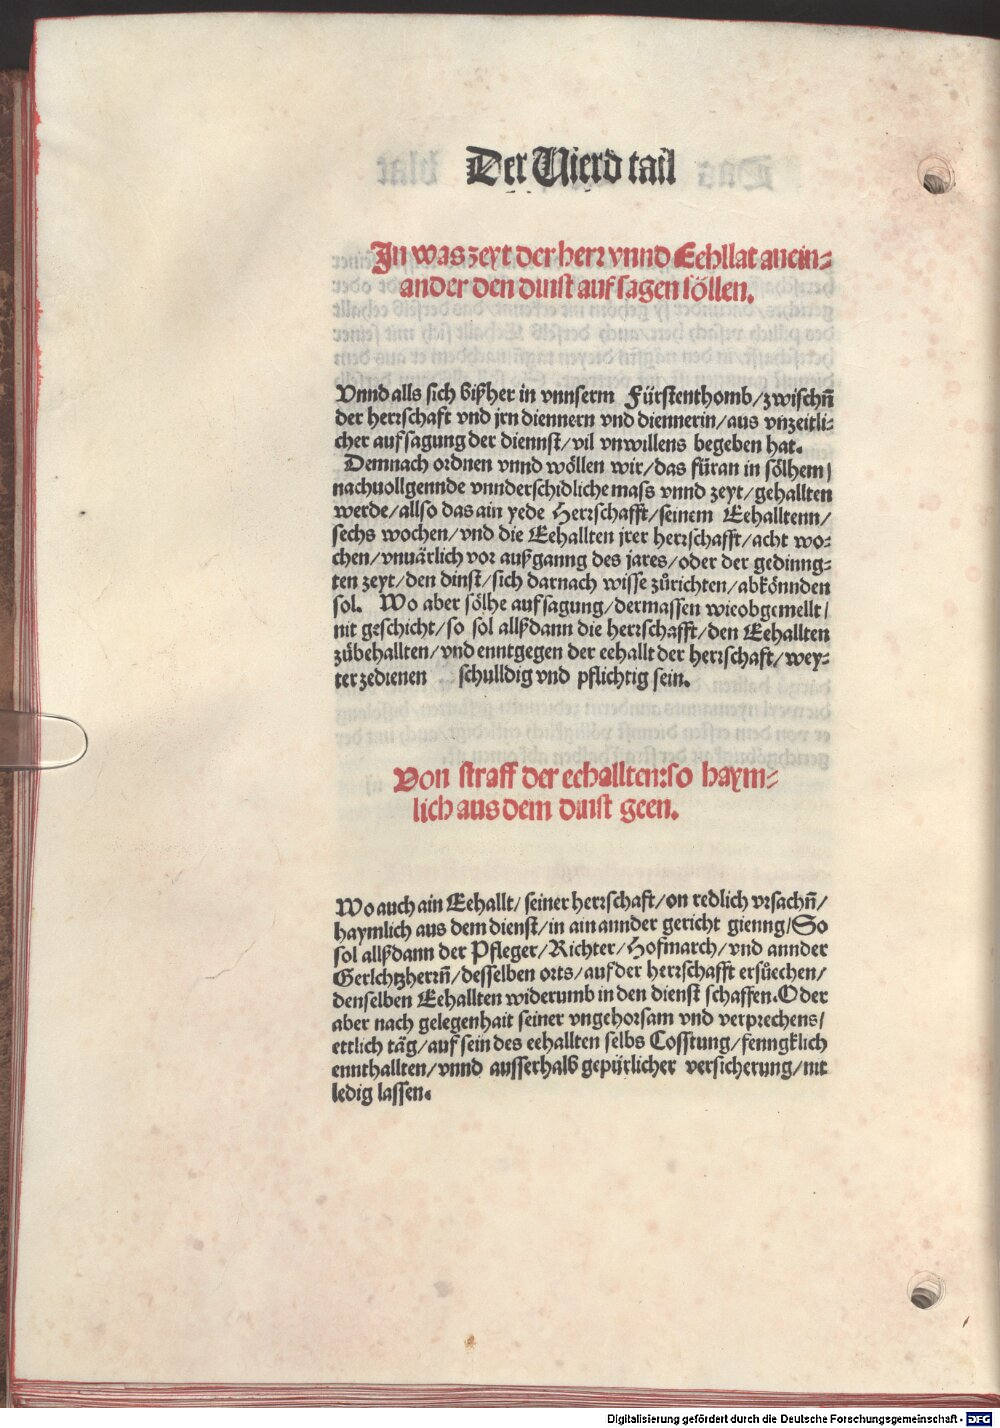 Der Vierd tail
In was zeyt der herr vnnd Eehllat anein⸗
ander den dinst auf sagen söllen.
Vnnd alls sich bißher in vnnserm Fürstenthomb/zwischñ
der herrschaft vnd jrn diennern vnd diennerin/aus vnzeitli⸗
cher aufsagung der diennst/vil vnwillens begeben hat.
Demnach ordnen vnnd wöllen wir/das füran in sölhem/
nachuollgennde vnnderschidliche mass vnnd zeyt/gehallten
werde/allso das ain yede Herrschafft/seinem Eehalltenn/
sechs wochen/vnd die Eehallten jrer herrschafft/acht wo⸗
chen/vnuärlich vor außganng des jares/oder der gedinng⸗
ten zeyt/den dinst/sich darnach wisse zůrichten/abkönnden
sol. Wo aber sölhe aufsagung/dermassen wieobgemellt/
nit geschicht/so sol allßdann die herrschafft/den Eehallten
zůbehallten/vnd enntgegen der eehallt der herrschaft/wey⸗
ter zedienen schulldig vnd pflichtig sein.
Von straff der eehallten:so haym⸗
lich aus dem dinst geen.
Wo auch ain Eehallt/seiner herrschaft/on redlich vrsachñ/
haymlich aus dem dienst/in ain annder gericht gienng/So
sol allßdann der Pfleger/Richter/Hofmarch/vnd annder
Gerichtzherrñ/desselben orts/auf der herrschafft ersůechen/
denselben Eehallten widerumb in den dienst schaffen.Oder
aber nach gelegenhait seiner vngehorsam vnd verprechens/
ettlich täg/auf sein des eehallten selbs Cosstung/fenngklich
ennthallten/vnnd ausserhalb gepürlicher versicherung/nit
ledig lassen.
Digitalisierung gefördert durch die Deutsche Forschungsgemeinschaft - DFG